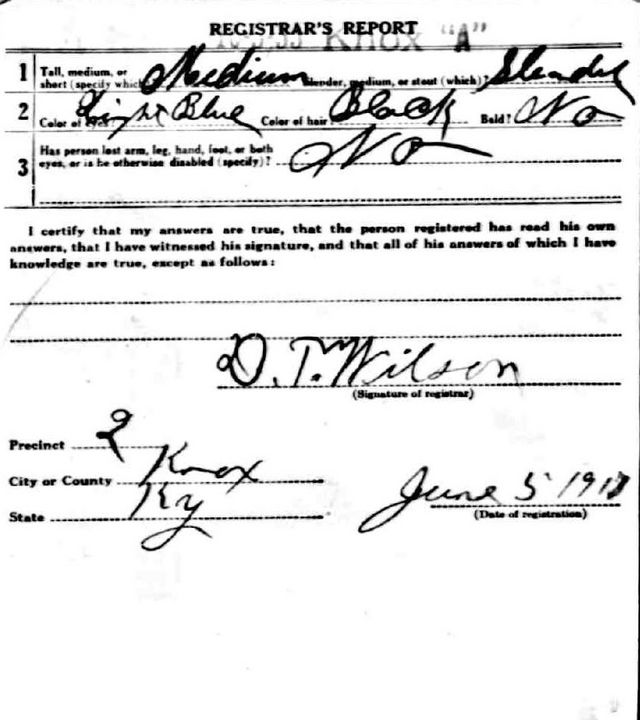 REGISTRAR'S REPORT
Knox "A"
1 Tall, medium, or short (specify which) Medium Slender, medium, or stout (which)? Slender
2 Color of eyes Light Blue Color of hair Black Bald? No
3 Has person lost arm, leg, hand, foot, or both
eyes, or is he otherwise disabled (specify)? No
I certify that my answers are true, that the person registered has read his own
answers, that I have witnessed his signature, and that all of his answers of which I have
knowledge are true, except as follows:
D. T. Wilson
(Signature of registrar)
Precinct 2
City or County Knox
State Ky
June 5 1917
(Date of registration)